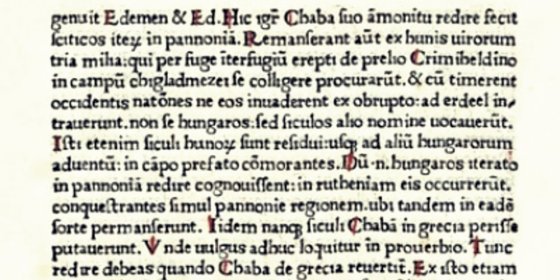 genuit Edemen & Ed. Hic igr̄ Chaba suo āmonitu redire fecit
sciticos iteꝝ in pannoniā. Remanserant aūt ex hunis uirorum
tria milia: qui per fuge iterfugiū erepti de prelio Crimheldino
in campū chigladmezei se colligere procurarūt. & cū timerent
occidentis natōnes ne eos inuaderent ex obrupto: ad erdeel in⸗
trauerunt. non se hungaros: sed siculos alio nomine uocauerūt.
Isti etenim siculi hunoꝝ sunt residui: usqꝫ ad aliū hungarorum
aduentū: in cāpo prefato cōmorantes. Dū .n. hungaros iterato
in pannoniā redire cognouissent: in rutheniam eis occurrerūt.
conquestrantes simul pannonie regionem. ubi tandem in eadē
sorte permanserunt. Iidem nanqꝫ siculi Chabā in grecia perisse
putauerunt. Vnde uulgus adhuc loquitur in prouerbio. Tunc
redire debeas quando Chaba de grecia reuertit̄. Ex isto etiam